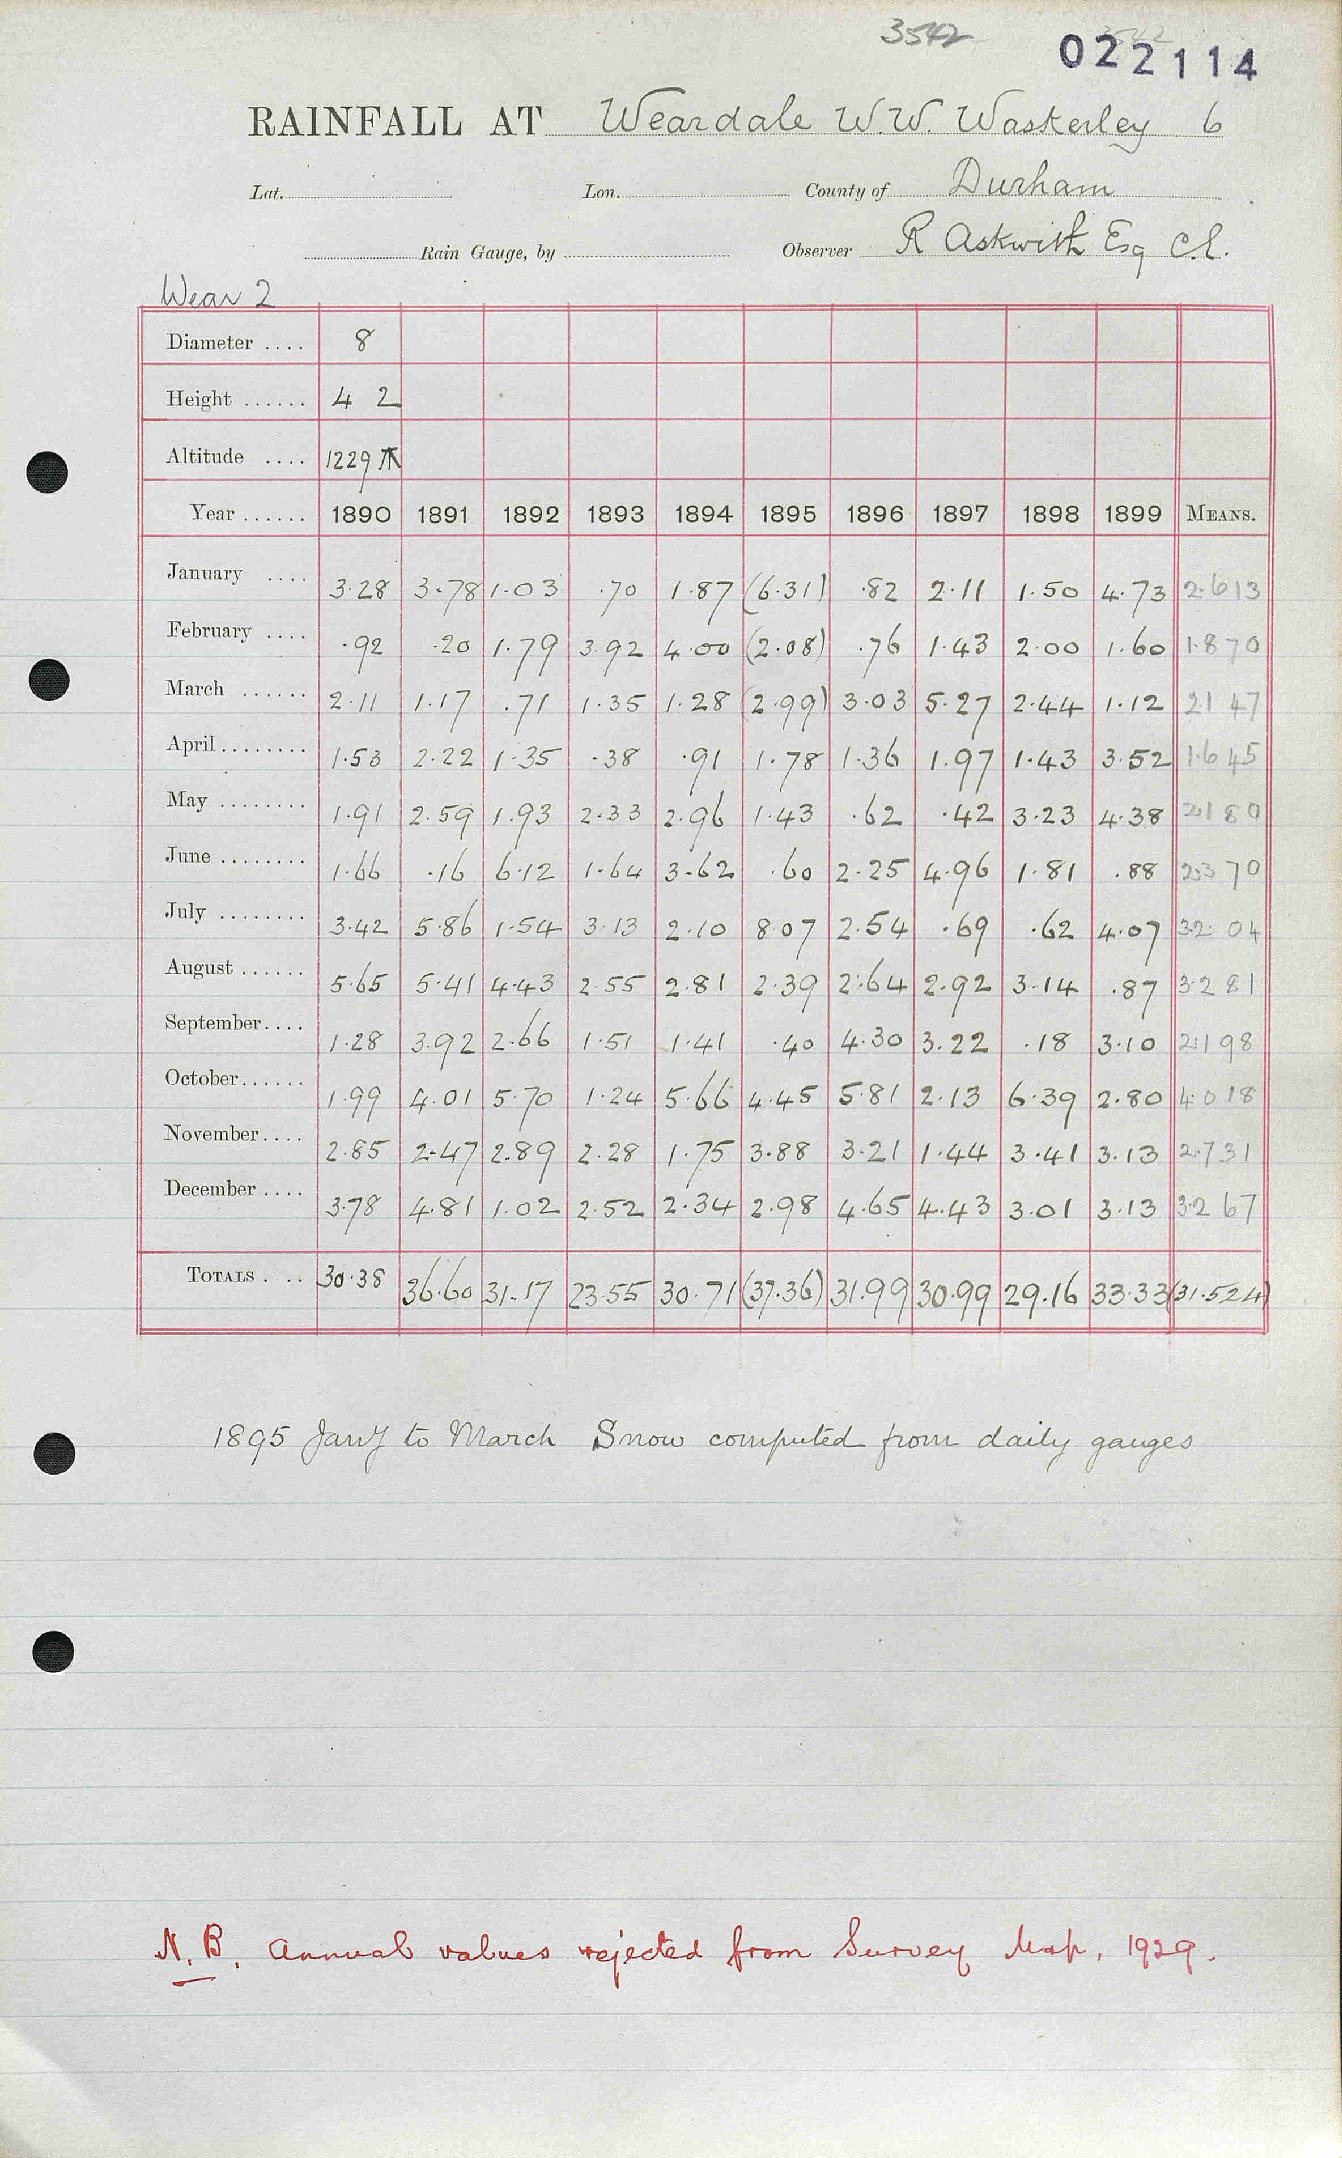 3542
022114
RAINFALL AT Weardale W.W. Waskerley 6
Lat. Lon. County of Durham
Rain Gauge, by Observer R Askwith Esq C.E.
Wear 2
Diameter .... 8
Height ...... 4 2
Altitude .... 1229
Year ...... 1890 1891 1892 1893 1894 1895 1896 1897 1898 1899 MEANS.
January .... 3.28 3.78 1.03 .70 1.87 (6.31) .82 2.11 1.50 4.73 2.613
February .... .92 .20 1.79 3.92 4.00 (2.08) .76 1.43 2.00 1.60 1.870
March ...... 2.11 1.17 .71 1.35 1.28 (2.99) 3.03 5.27 2.44 1.12 2147
April ........ 1.53 2.22 1.35 .38 .91 1.78 1.36 1.97 1.43 3.52 1.645
May ........ 1.91 2.59 1.93 2.33 2.96 1.43 .62 .42 3.23 4.38 2180
June ........ 1.66 .16 6.12 1.64 3.62 .60 2.25 4.96 1.81 .88 2370
July ........ 3.42 5.86 1.54 3.13 2.10 8.07 2.54 .69 .62 4.07 3204
August ...... 5.65 5.41 4.43 2.55 2.81 2.39 2.64 2.92 3.14 .87 3281
September .... 1.28 3.92 2.66 1.51 1.41 .40 4.30 3.22 .18 3.10 2198
October ...... 1.99 4.01 5.70 1.24 5.66 4.45 5.81 2.13 6.39 2.80 4.018
November .... 2.85 2.47 2.89 2.28 1.75 3.88 3.21 1.44 3.41 3.13 2.731
December .... 3.78 4.81 1.02 2.52 2.34 2.98 4.65 4.43 3.01 3.13 3.267
TOTALS .... 30.38 36.60 31.17 23.55 30.71 (37.36) 31.99 30.99 29.16 33.33 (31.524)
1895 Jany to March Snow computed from daily gauges
N.B. Annual values rejected from Survey Map, 1929.